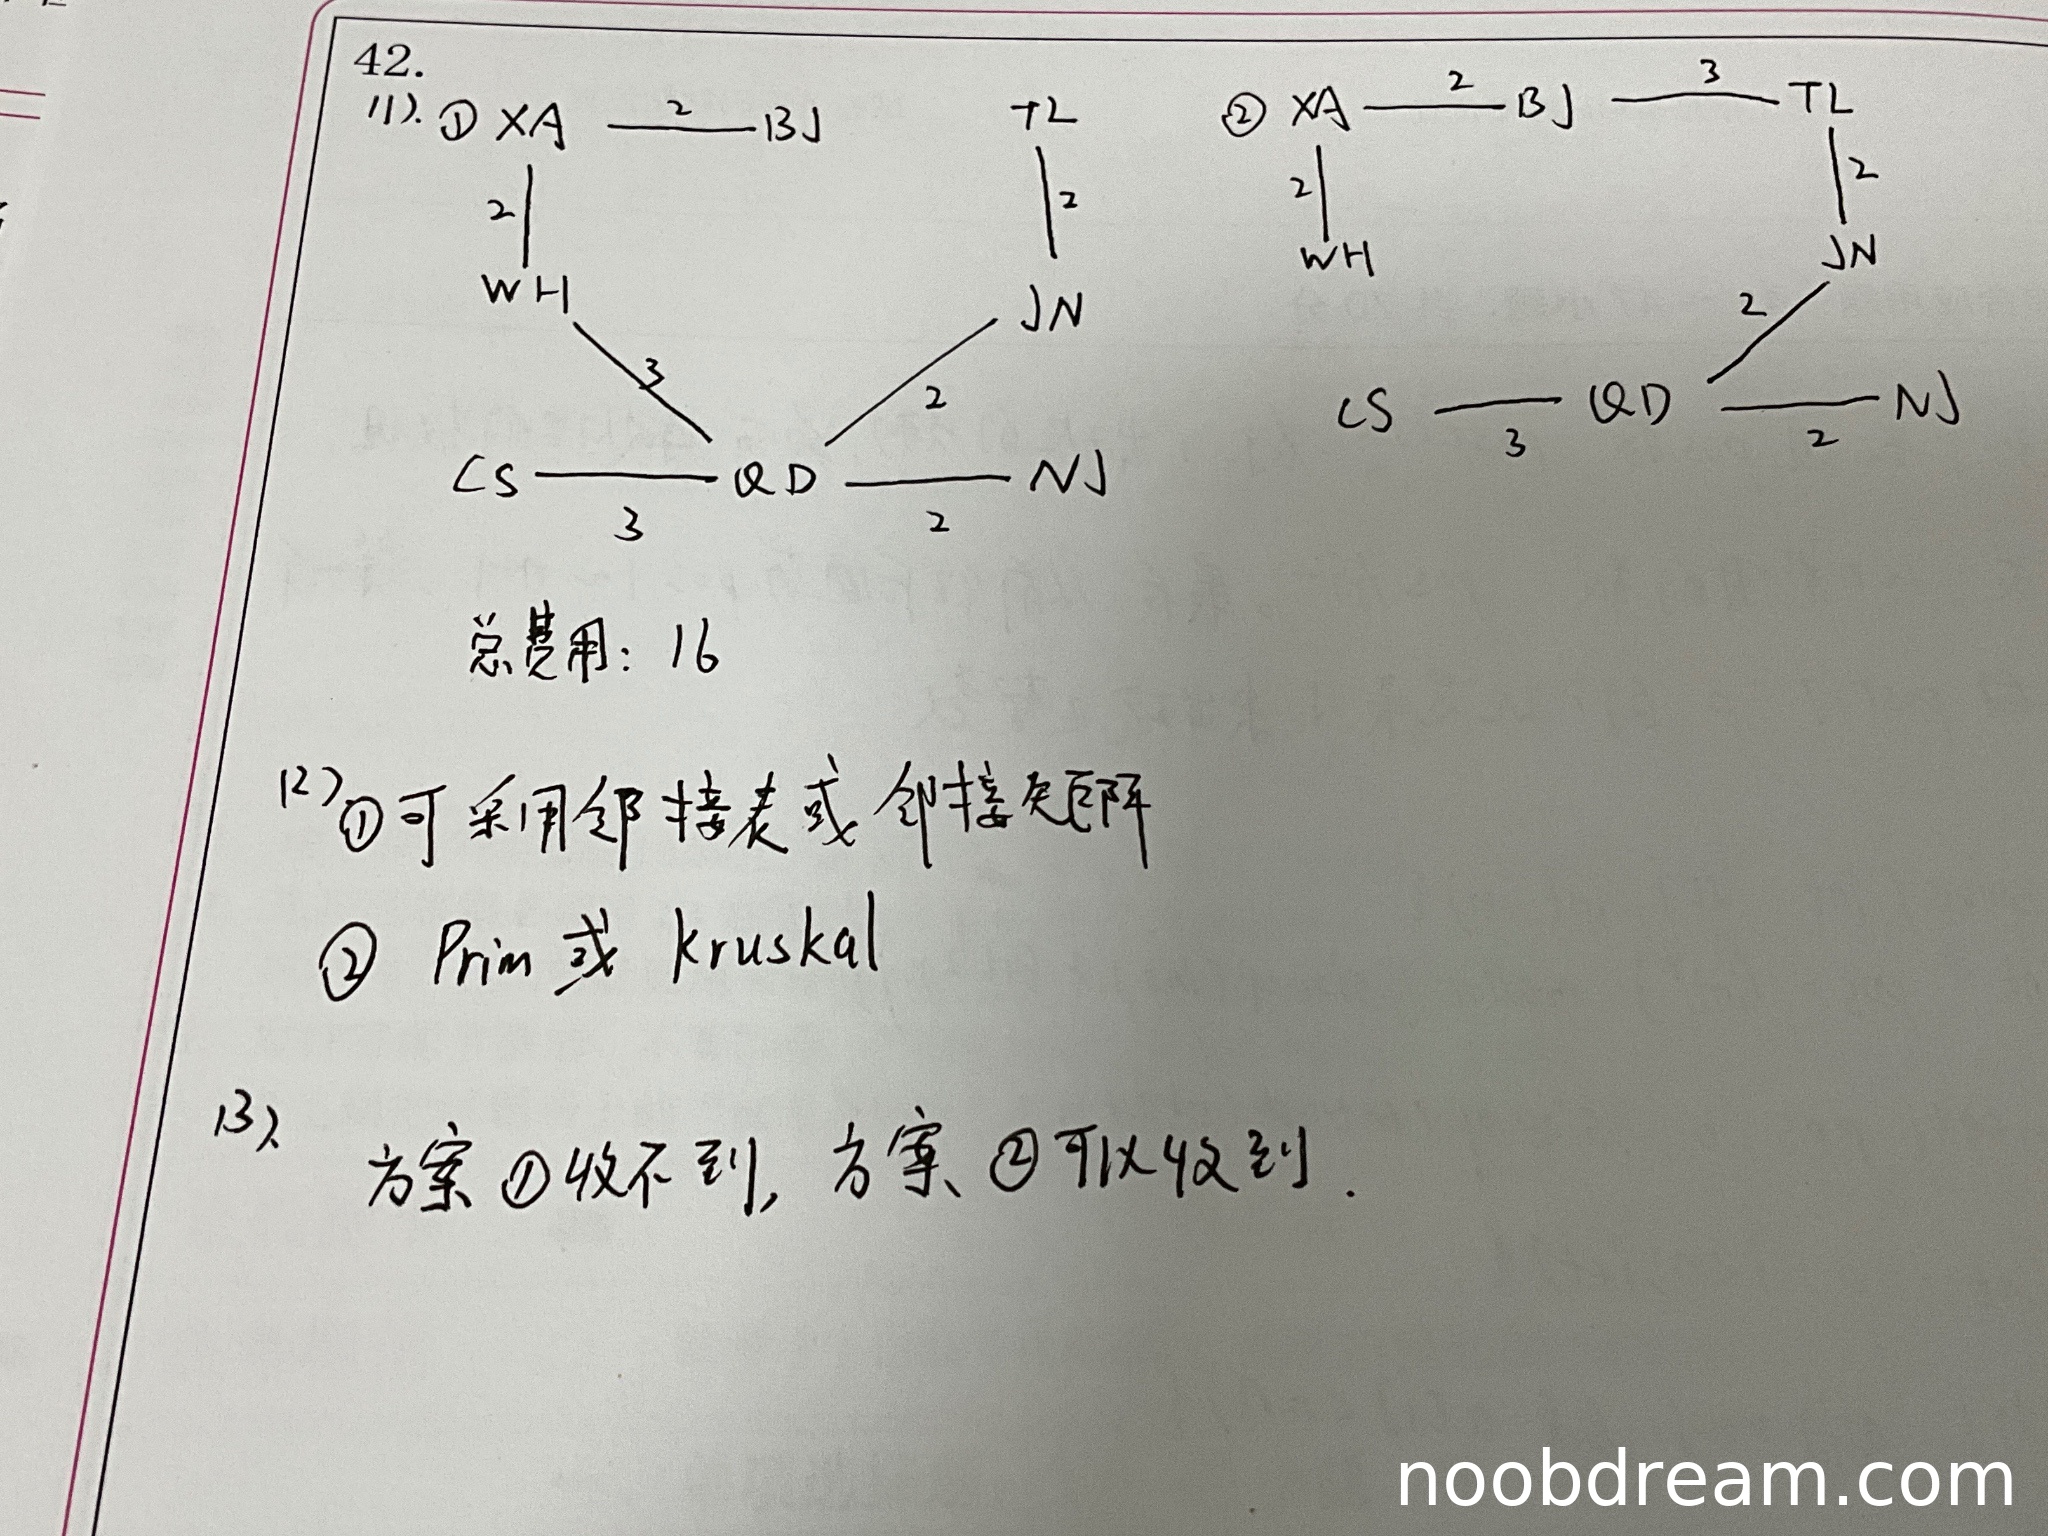 42.
(1). ① XA 2 BJ TL
2 2
WH JN
3 2
CS 3 QD 2 NJ
总费用: 16
② XA 2 BJ 3 TL
2 2
WH JN
2
CS 3 QD 2 NJ
(2) ① 可采用邻接表或邻接矩阵
② Prim 或 kruskal
(3).
方案 ① 收不到, 方案 ② 可以收到.
noobdream.com